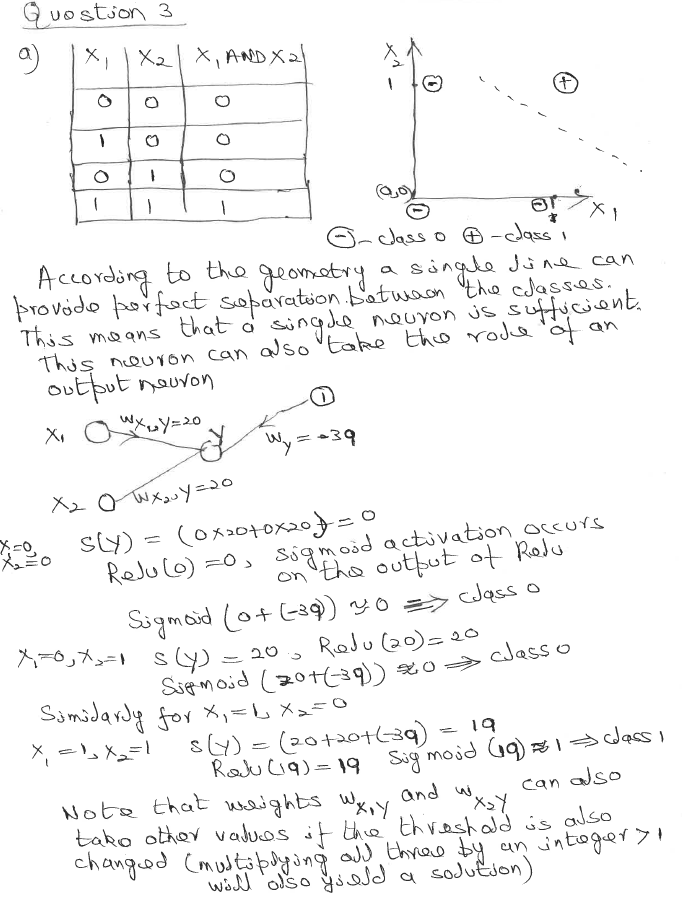 Question 3
a)
X1 X2 X1 AND X2
0 0 0
1 0 0
0 1 0
1 1 1
X2
1 ⊖ ⊕
(0,0)
⊖ ⊖ 1 X1
⊖ – class 0 ⊕ – class 1
According to the geometry a single line can
provide perfect separation between the classes.
This means that a single neuron is sufficient.
This neuron can also take the role of an
output neuron
1
X1 wX1,Y=20 Y
wY = -39
X2 wX2,Y=20
X1=0, X2=0 S(Y) = (0x20+0x20) = 0
Relu(0) =0, sigmoid activation occurs
on the output of Relu
Sigmoid (0+(-39)) ≈ 0 ⇒ class 0
X1=0, X2=1 S(Y) = 20, Relu(20) = 20
Sigmoid (20+(-39)) ≈ 0 ⇒ class 0
Similarly for X1=1, X2=0
X1=1, X2=1 S(Y) = (20+20+(-39) = 19
Relu(19) = 19 Sigmoid (19) ≈ 1 ⇒ class 1
Note that weights wX1Y and wX2Y can also
take other values if the threshold is also
changed (multiplying all three by an integer >1
will also yield a solution)